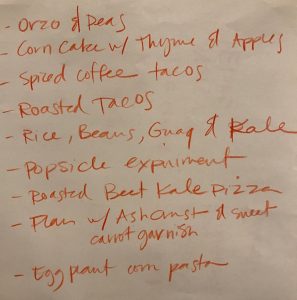 - Orzo & Peas
- Corn Cake w/ Thyme & Apples
- Spiced coffee tacos
- Roasted Tacos
- Rice, Beans, Guaq & Kale
- Popsicle expiriment
- Roasted Beet Kale pizza
- w/ & sweet
carrot garnish
- Eggplant corn pasta